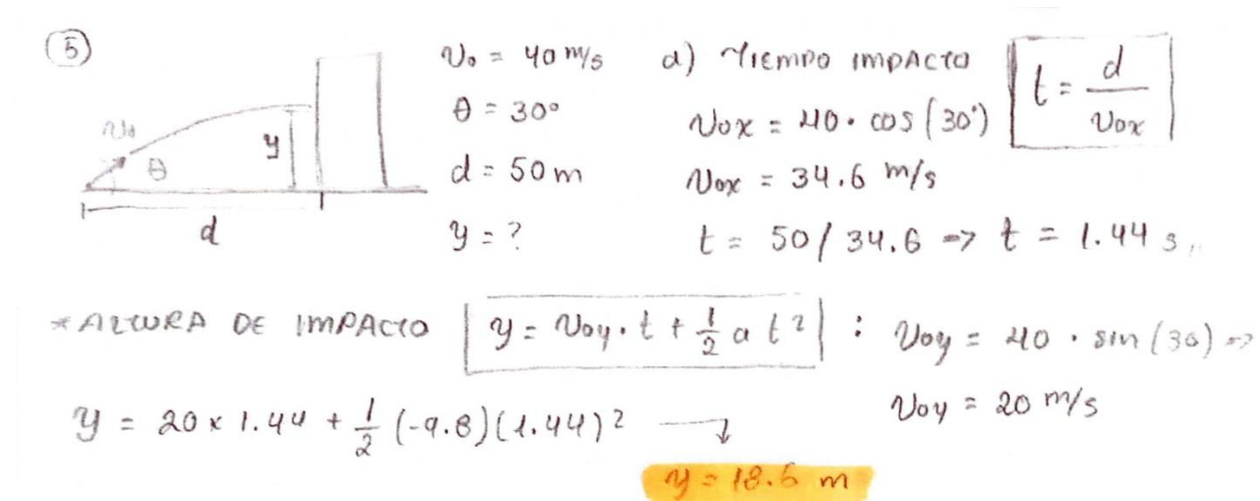 5
v₀ = 40 m/s
θ = 30°
d = 50 m
y = ?
v₀
θ
y
d
a) TIEMPO IMPACTO
t = d / v₀x
v₀x = 40 · cos (30°)
v₀x = 34.6 m/s
t = 50 / 34.6 => t = 1.44 s
* ALTURA DE IMPACTO y = v₀y · t + 1/2 a t² : v₀y = 40 · sin (30) =>
v₀y = 20 m/s
y = 20 x 1.44 + 1/2 (-9.8)(1.44)² →
y = 18.6 m